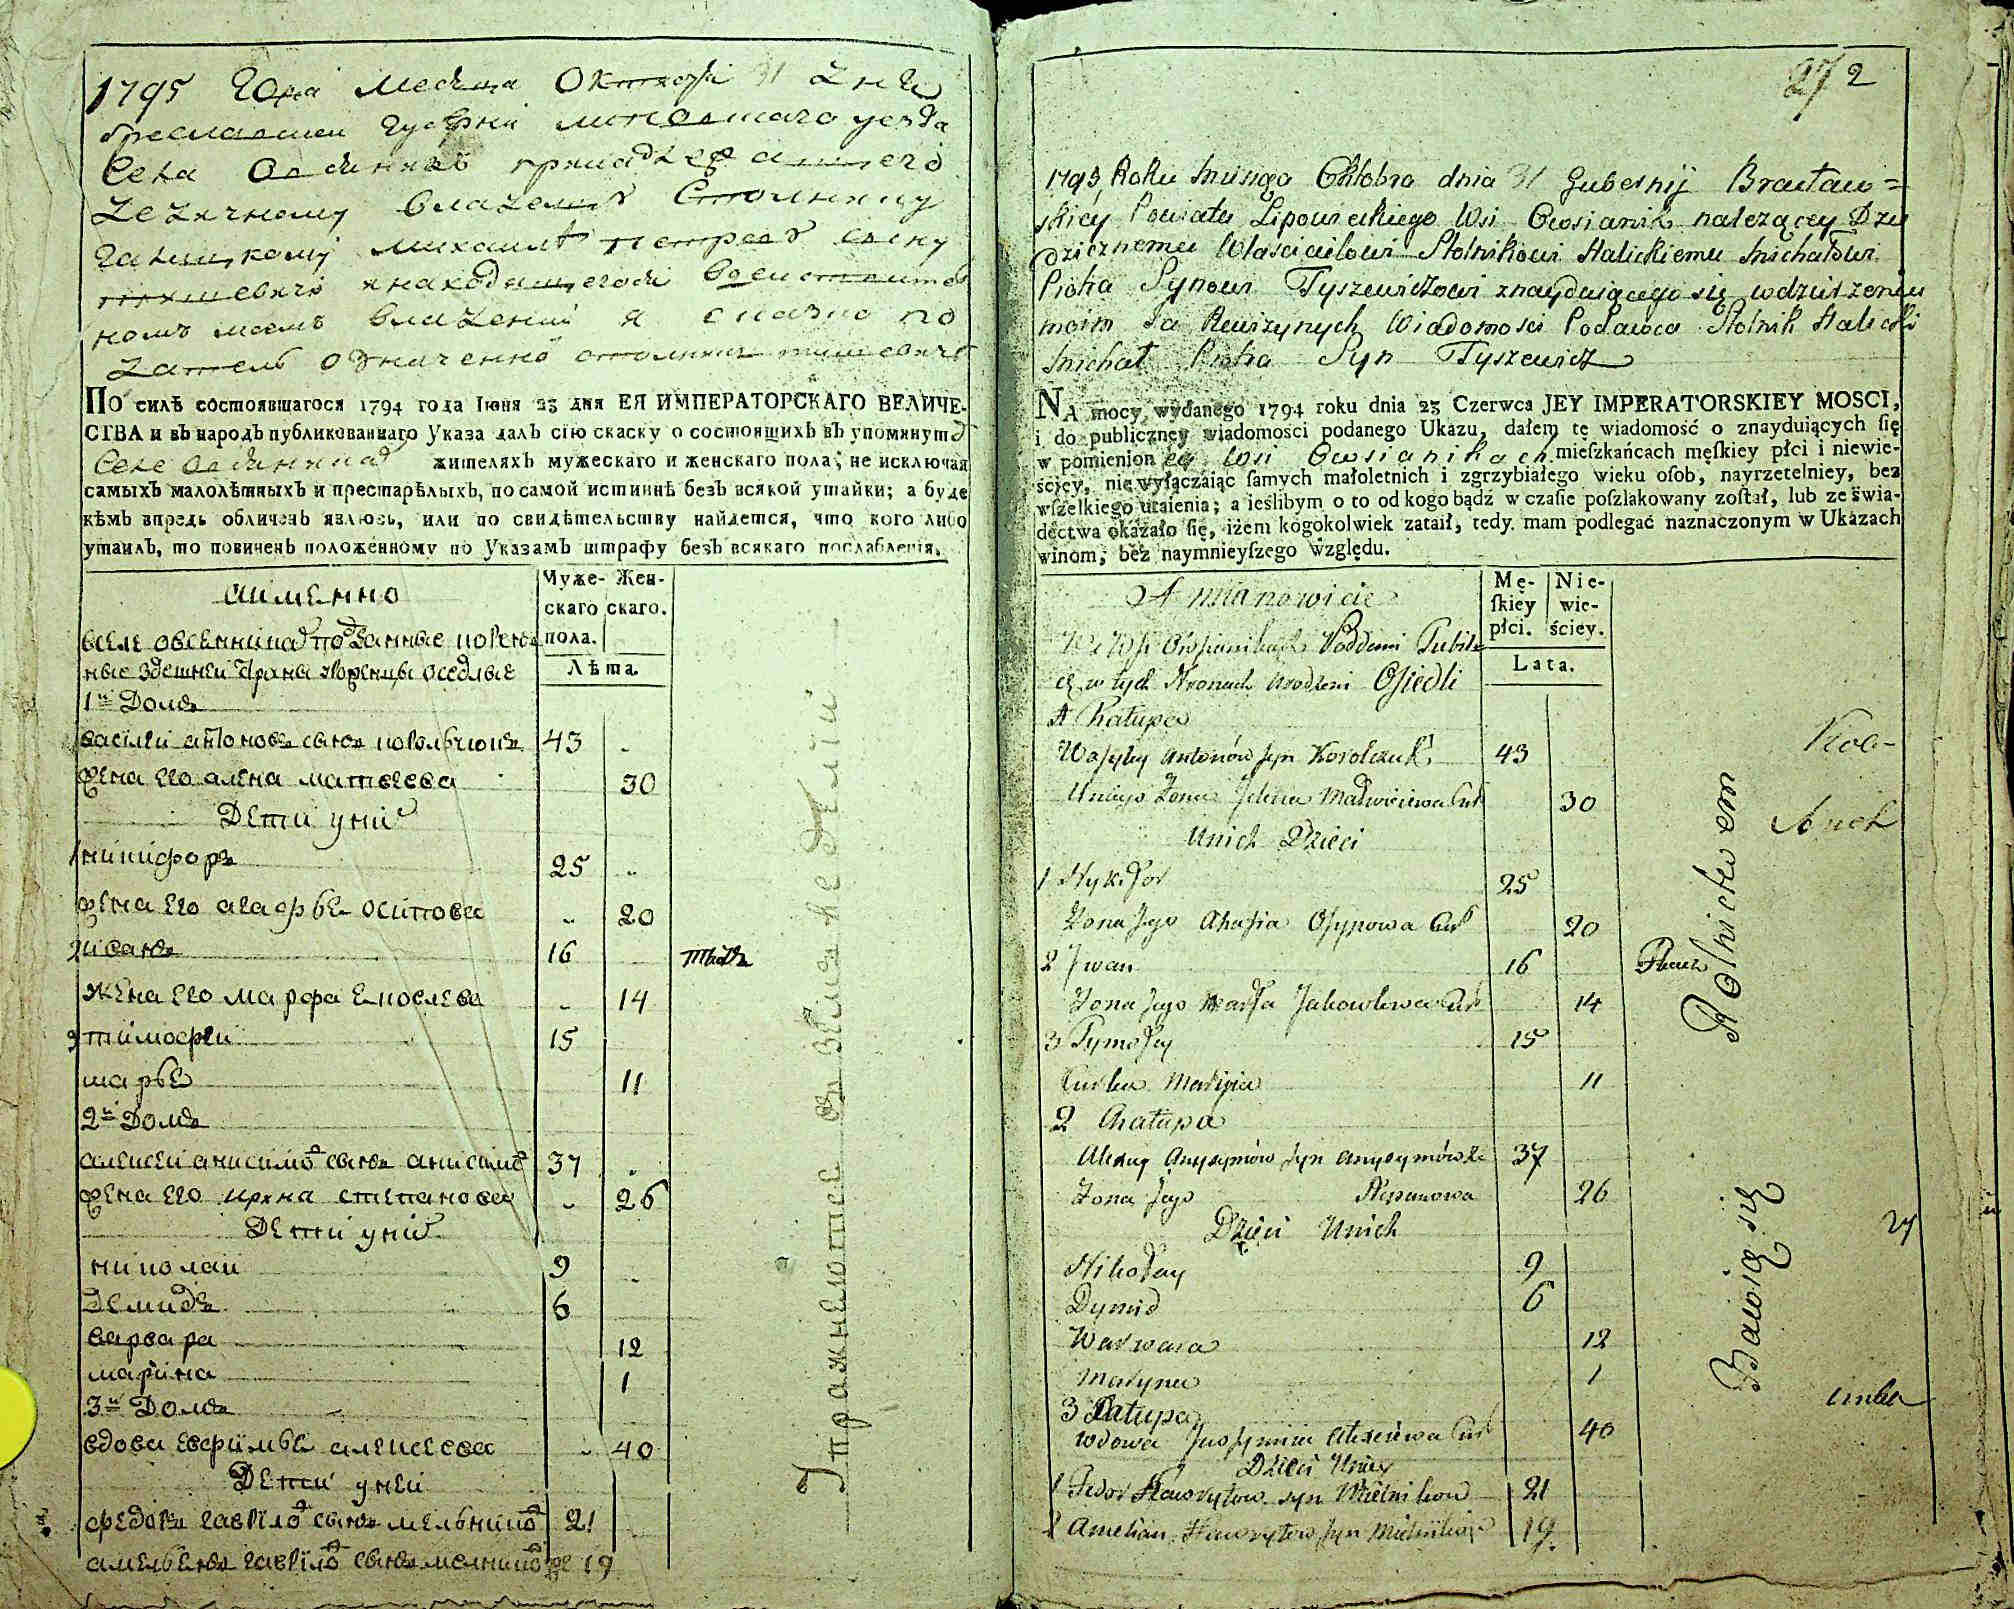 1795 Года Месяца Октября 31 дня
Бреславской губернии Липовецкаго уезда
Села Овсяников принадлежащего
дедичному владелцу Столнику
Галицкому Михаилу Петрову сыну
Тишкевичу и находящегося
ном моем владении я сказкоподатель
означенной столник Тишкевич
ПО силѣ состоявшагося 1794 года Іюня 23 дня ЕЯ ИМПЕРАТОРСКАГО ВЕЛИЧЕ-
СТВА и въ народъ публикованнаго Указа далъ сію скаску о состоящихъ въ упомянутo
Селе Овсяниках жителяхъ мужескаго и женскаго пола; не исключая
самыхъ малолѣтныхъ и престарѣлыхъ, по самой истиннѣ безъ всякой утайки; а буде
кѣмъ впредь обличенъ явлюсь, или по свидѣтельству найдется, что кого либо
утаилъ, то повиченъ положенному по Указамъ штрафу безъ всякаго послабленія.
а именно
Муже- Жен-
скаго скаго.
пола.
Лѣта.
вселе овсенниках подданные
ные здешней уроженцы оседлые
1й Домъ
василей антоновъ сынъ корольчукъ 43
жена его алена матвеева 30
Дети у них
1 никифоръ 25
жена его агафья осипова 20
2 иванъ 16 ткачь
жена его марфа яковлева 14
3 тимофеи 15
марья 11
2й Домъ
алексеи анисимов сынъ анисимов 37
жена его ирина степанова 26
Дети у них
николаи 9
демидъ 6
варвара 12
марина 1
3й Домъ
вдова евфимья алексеева 40
Дети у ней
федоръ гаврилов сынъ мельников 21
амельянъ гаврилов сынъ мелников 19
Упражнеются в земледелии
272
1795 Roku Miesiąca Oktobra dnia 31 Gubernij Bracław=
skiey Powiatu Lipowieckiego Wsi Owsianik należącey Dzie
dzicznemu Właścicielowi Stolnikowi Halickiemu Michałowi
Piotra Synowi Tyszkiewiczowi znayduiącego się w dzierżeniu
moim Ja Rewizynych Wiadomości Podawca Stolnik Halicki
Michał Piotra Syn Tyszkiewicz
NA mocy wydanego 1794 roku dnia 23 Czerwca JEY IMPERATORSKIEY MOSCI,
i do publiczney wiadomości podanego Ukazu, dałem tę wiadomość o znayduiących ſię
w pomienioney Wsi Owsianikach mieſzkańcach męſkiey płci i niewie-
ściey, niewyłączaiąc ſamych małoletnich i zgrzybiałego wieku oſob, nayrzetelniey, bez
wſzelkiego utaienia; a ieślibym o to od kogo bądź w czaſie poſzlakowany został, lub ze świa-
dectwa okazało ſię, iżem kogokolwiek zataił, tedy mam podlegać naznaczonym w Ukazach
winom, bez naymnieyſzego względu.
A mianowicie
Mę- Nie-
ſkiey wie-
płci. ściey.
Lata.
We Wsi Owsianikach Poddani
w tych Stronach Urodzeni Osiedli
1 Chałupa
Wasyly Antonów syn Korolczuk 43
Uniego Żona Jelena Matwieiewa Cur 30
Unich Dzieci
1 Nykifor 25
Żona Jego Ahafia Osypowa Cur 20
2 Jwan 16 Tkacz
Żona Jego Marfa Jakowlewa Cur 14
3 Tymofiy 15
Curka Maryia 11
2 Chałupa
Alexey Anysymów syn Anysymów 37
Żona Jego Stepanowa 26
Dzieci Unich
Nikołay 9
Dymid 6
Warwara 12
Maryna 1
3 Chałupa
Wdowa Jewfymia Alexeiewa Cur 40
Dzieci Uniey
1 Fedor Hawryłow syn Mielnikow 21
2 Amelian Hawryłow syn Mielnikow 19
Rolnictwem
Bawią się